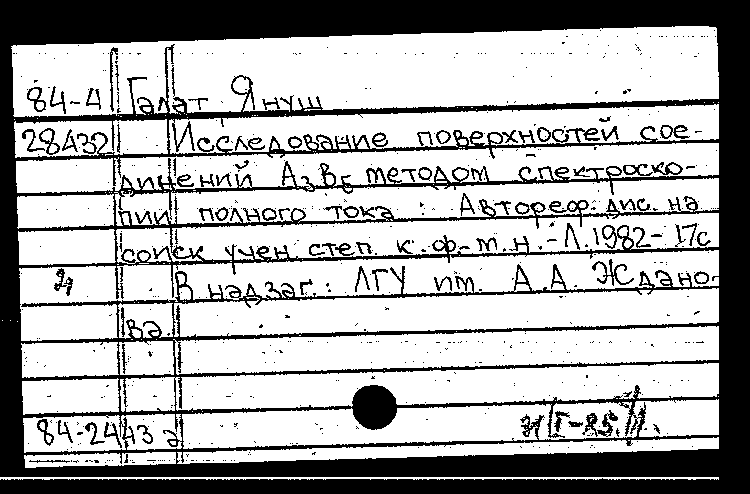 84-4 Галат Януш
28432 Исследование поверхностей сое-
динений А3В5 методом спектроско-
пии полного тока : Автореф. дис. на
соиск учен. степ. к.ф.-м.н. - Л. 1982 - 17с
В надзаг.: ЛГУ им. А.А. Ждано-
ва.
84-2443 а